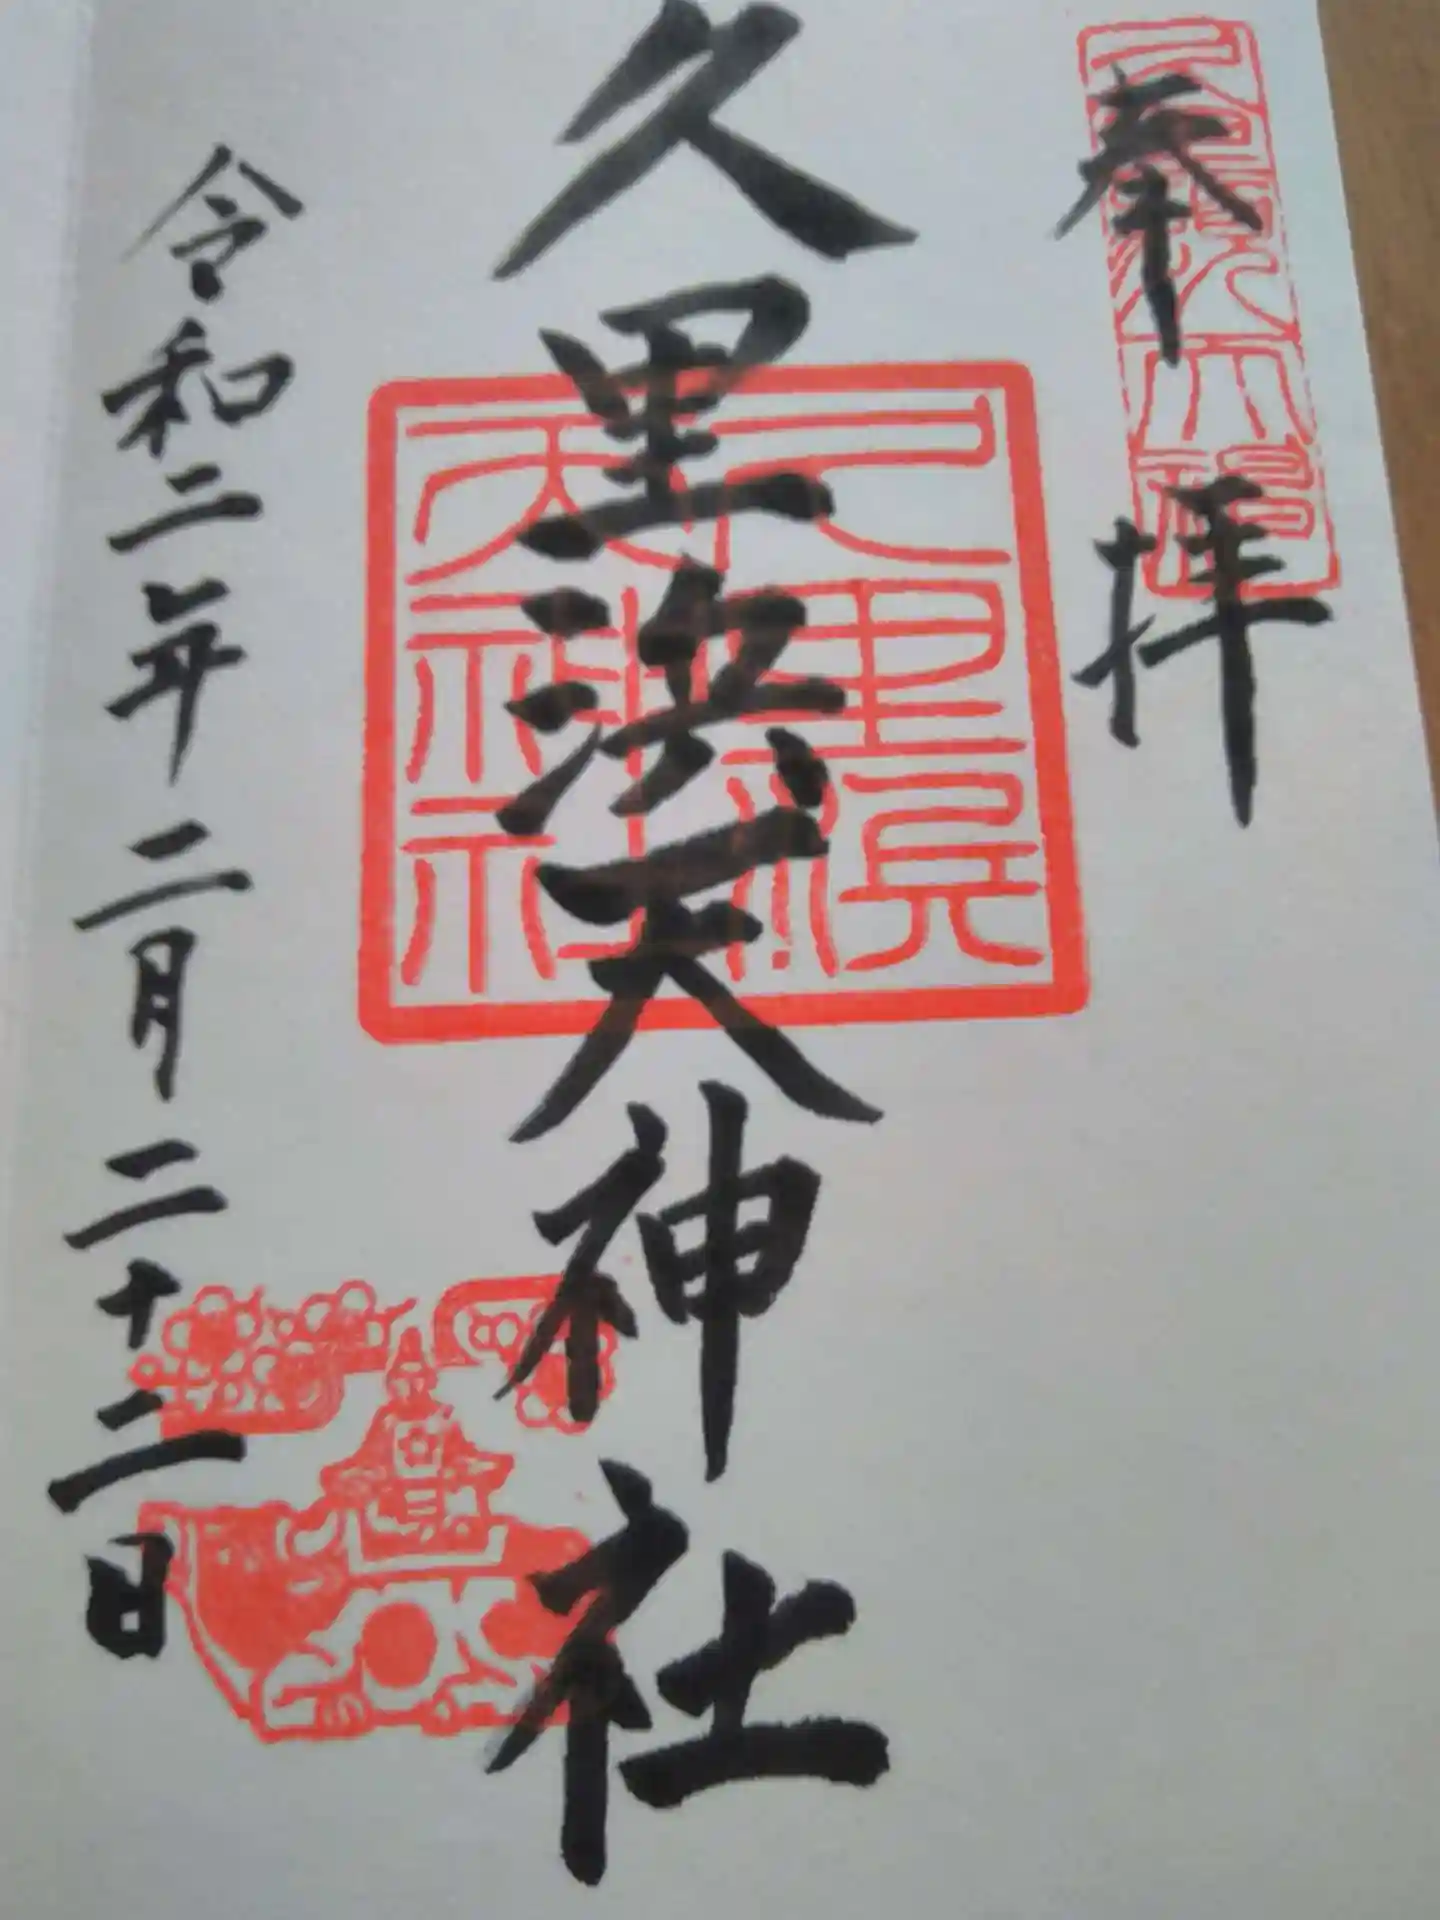 奉拝
久里浜天神社
久里濱天神社
令和二年二月二十二日